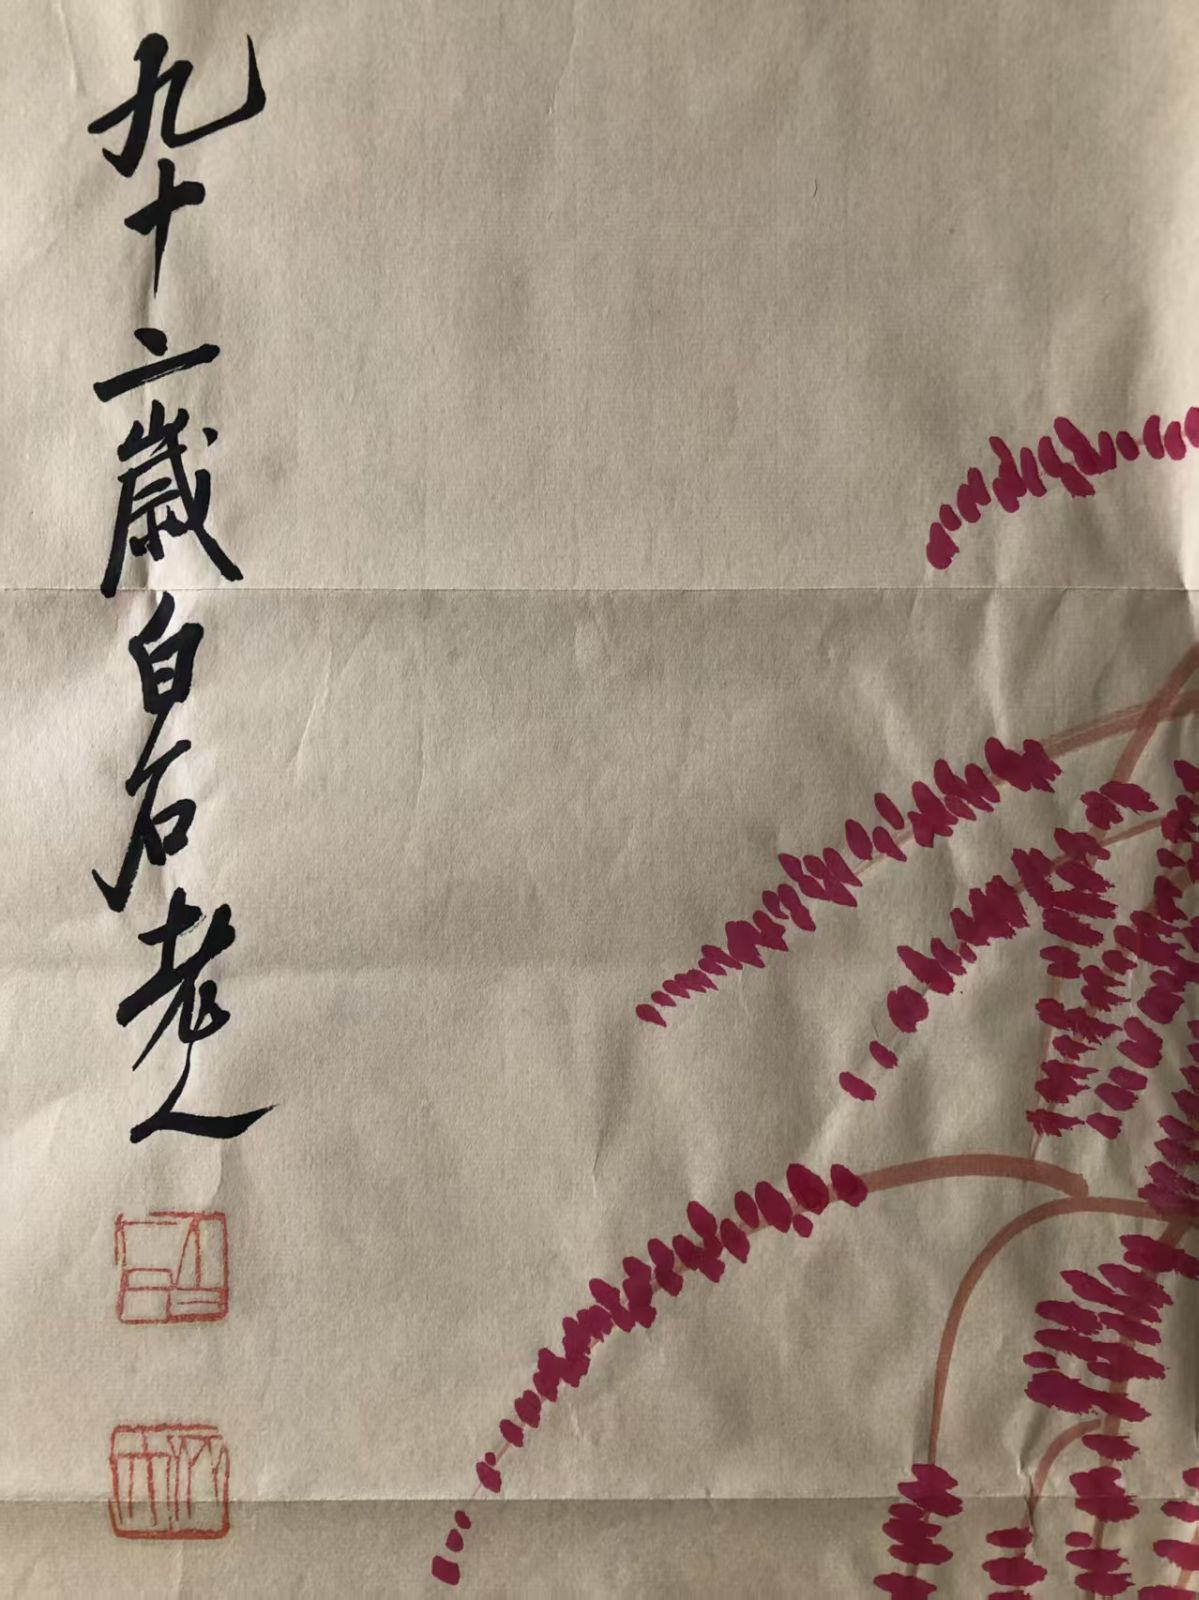 九十二歲白石老人